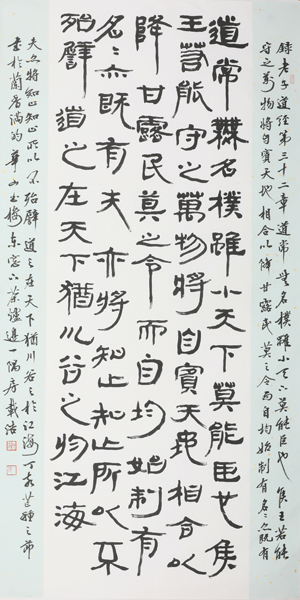 錄老子道经第三十二章道常無名樸雖小天下莫能臣也侯王若能
守之萬物將自賓天地相合以降甘露民莫之令而自均始制有名々亦既有
道常無名樸雖小天下莫能臣也侯
王若能守之萬物將自賓天地相合以
降甘露民莫之令而自均始制有
名々亦既有夫亦將知止知止所以不
殆譬道之在天下猶川谷之於江海
夫亦將知止知止所以不殆譬道之在天下猶川谷之於江海丁亥芒種之節
書於蘭華山東窗下茶爐邊一隅